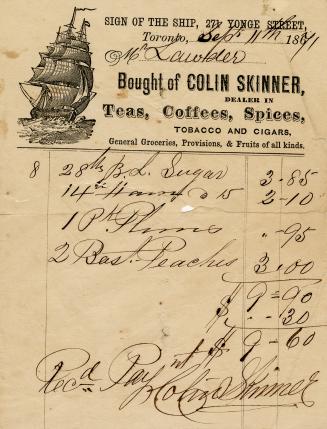 SIGN OF THE SHIP, 27½ YONGE STREET,
Toronto, Sept 11th 1871
Mr Lawder
Bought of COLIN SKINNER,
DEALER IN
Teas, Coffees, Spices,
TOBACCO AND CIGARS,
General Groceries, Provisions, & Fruits of all kinds.
8 28 lbs B. L. Sugar 3-85
14 lbs Ham 15 2-10
1 Plums "-95
2 Bast. Peaches 3,00
$ 9=90
$ "-30
$ 9-60
Recd Payt
Colin Skinner